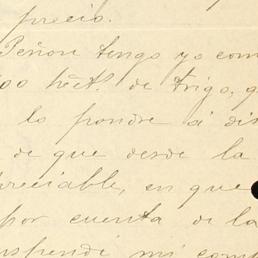 precio.
Peñon tengo yo com
00 hect. de trigo, q
lo pondre á dis
de que desde la
preciable, en que
por cuenta de la
uspende mi comp